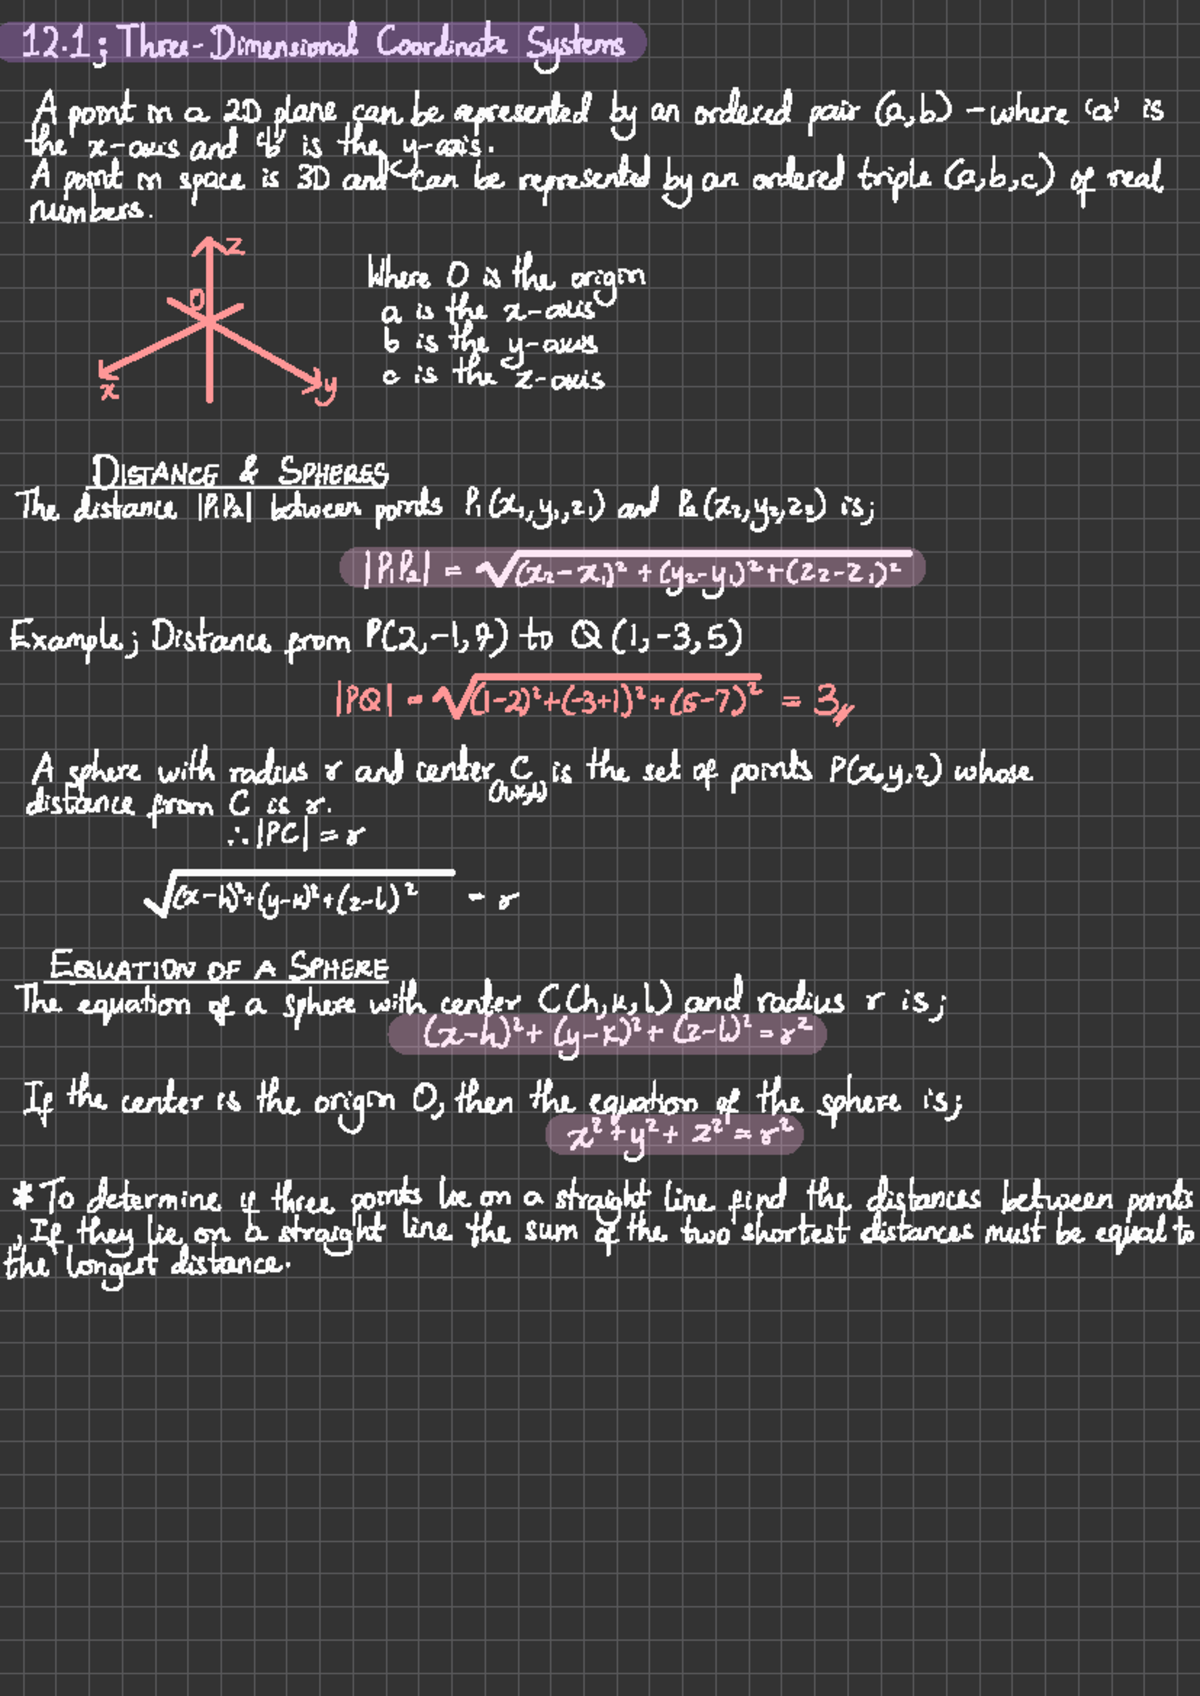 12.1; Three-Dimensional Coordinate Systems
A point in a 2D plane can be represented by an ordered pair (a,b) - where 'a' is
the x-axis and 'b' is the y-axis.
A point in space is 3D and can be represented by an ordered triple (a,b,c) of real
numbers.
z
O
x
y
Where O is the origin
a is the x-axis
b is the y-axis
c is the z-axis
DISTANCE & SPHERES
The distance |P₁P₂| between points P₁(x₁,y₁,z₁) and P₂(x₂,y₂,z₂) is;
|P₁P₂| = √(x₂-x₁)² + (y₂-y₁)² + (z₂-z₁)²
Example; Distance from P(2,-1,7) to Q(1,-3,5)
|PQ| = √(1-2)² + (-3+1)² + (5-7)² = 3
A sphere with radius r and center C is the set of points P(x,y,z) whose
(h,k,l)
distance from C is r.
∴ |PC| = r
√(x-h)² + (y-k)² + (z-l)² = r
EQUATION OF A SPHERE
The equation of a sphere with center C(h,k,l) and radius r is;
(x-h)² + (y-k)² + (z-l)² = r²
If the center is the origin O, then the equation of the sphere is;
x² + y² + z² = r²
* To determine if three points lie on a straight line find the distances between points
, If they lie on a straight line the sum of the two shortest distances must be equal to
the longest distance.